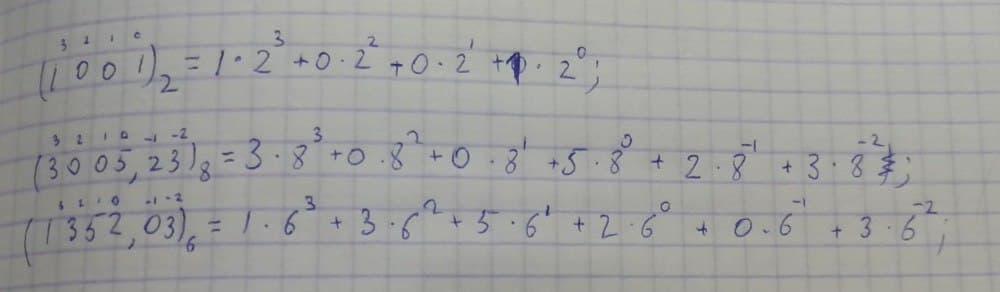 (1³0²0¹1⁰)₂ = 1 · 2³ + 0 · 2² + 0 · 2¹ + 1 · 2⁰;
(3³0²0¹5⁰,2⁻¹3⁻²)₈ = 3 · 8³ + 0 · 8² + 0 · 8¹ + 5 · 8⁰ + 2 · 8⁻¹ + 3 · 8⁻²;
(1³3²5¹2⁰,0⁻¹3⁻²)₆ = 1 · 6³ + 3 · 6² + 5 · 6¹ + 2 · 6⁰ + 0 · 6⁻¹ + 3 · 6⁻²;